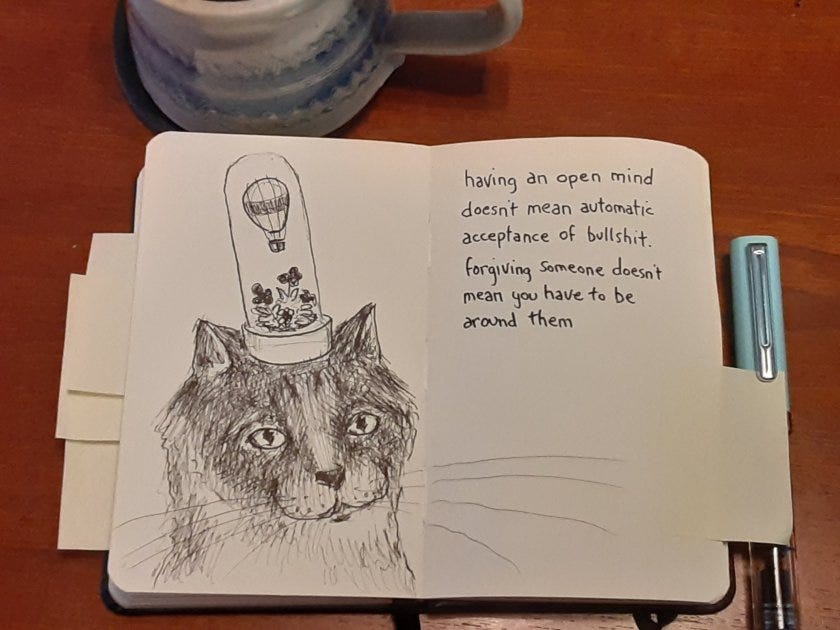 having an open mind
doesn't mean automatic
acceptance of bullshit.
forgiving someone doesn't
mean you have to be
around them